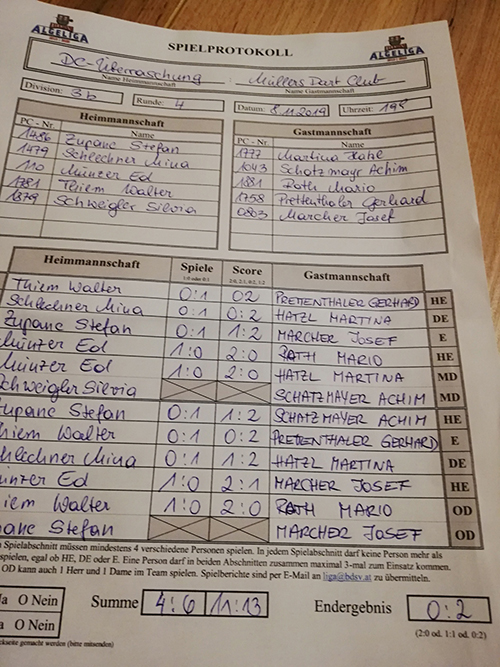 ALGELIGA
SPIELPROTOKOLL
ALGELIGA
DC-Überraschung : Müllers Dart Club
Name Heimmannschaft Name Gastmannschaft
Division: 3b Runde: 4 Datum: 8.11.2019 Uhrzeit:
Heimmannschaft Gastmannschaft
PC - Nr. Name PC - Nr. Name
1486 Zupanc Stefan 1777 Martina Hatzl
1479 Schlechner Mina 1043 Schatzmayr Achim
110 Münzer Ed 1881 Rath Mario
1781 Thiem Walter 1758 Prettenthaler Gerhard
1879 Schweigler Silvia 0803 Marcher Josef
Heimmannschaft Spiele Score Gastmannschaft
1:0 oder 0:1 2:0, 2:1, 0:2, 1:2
Thiem Walter 0:1 0:2 PRETTENTHALER GERHARD HE
Schlechner Mina 0:1 0:2 HATZL MARTINA DE
Zupanc Stefan 0:1 1:2 MARCHER JOSEF E
Münzer Ed 1:0 2:0 RATH MARIO HE
Münzer Ed 1:0 2:0 HATZL MARTINA MD
chweigler Silvia SCHATZMAYER ACHIM MD
Zupanc Stefan 0:1 1:2 SCHATZMAYER ACHIM HE
hiem Walter 0:1 0:2 PRETTENTHALER GERHARD E
chlechner Mina 0:1 1:2 HATZL MARTINA DE
ünzer Ed 1:0 2:1 MARCHER JOSEF HE
iem Walter 1:0 2:0 RATH MARIO OD
anc Stefan MARCHER JOSEF OD
Spielabschnitt müssen mindestens 4 verschiedene Personen spielen. In jedem Spielabschnitt darf keine Person mehr als
spielen, egal ob HE, DE oder E. Eine Person darf in beiden Abschnitten zusammen maximal 3-mal zum Einsatz kommen.
OD kann auch 1 Herr und 1 Dame im Team spielen. Spielberichte sind per E-Mail an liga@bdsv.at zu übermitteln.
Ja O Nein Summe 4:6 11:13 Endergebnis 0:2
a O Nein
(2:0 od. 1:1 od. 0:2)
ckseite gemacht werden (bitte mitsenden)